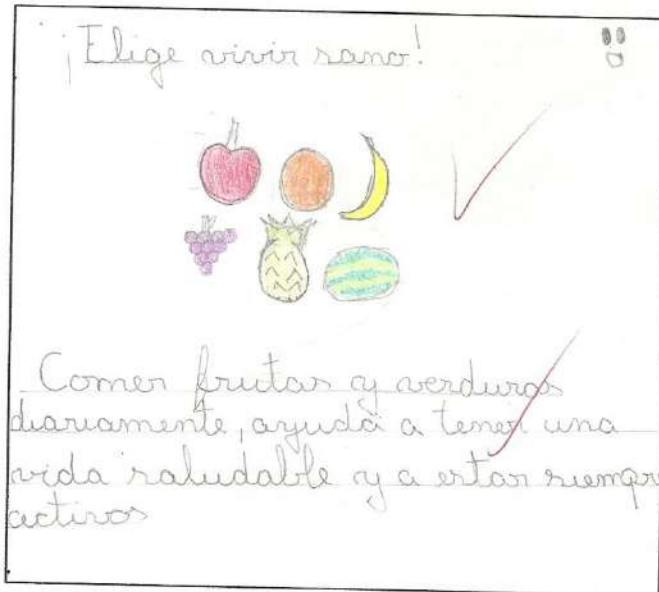 ¡Elige vivir sano!
Comer frutas y verduras
diariamente, ayuda a tener una
vida saludable y a estar siempre
activos